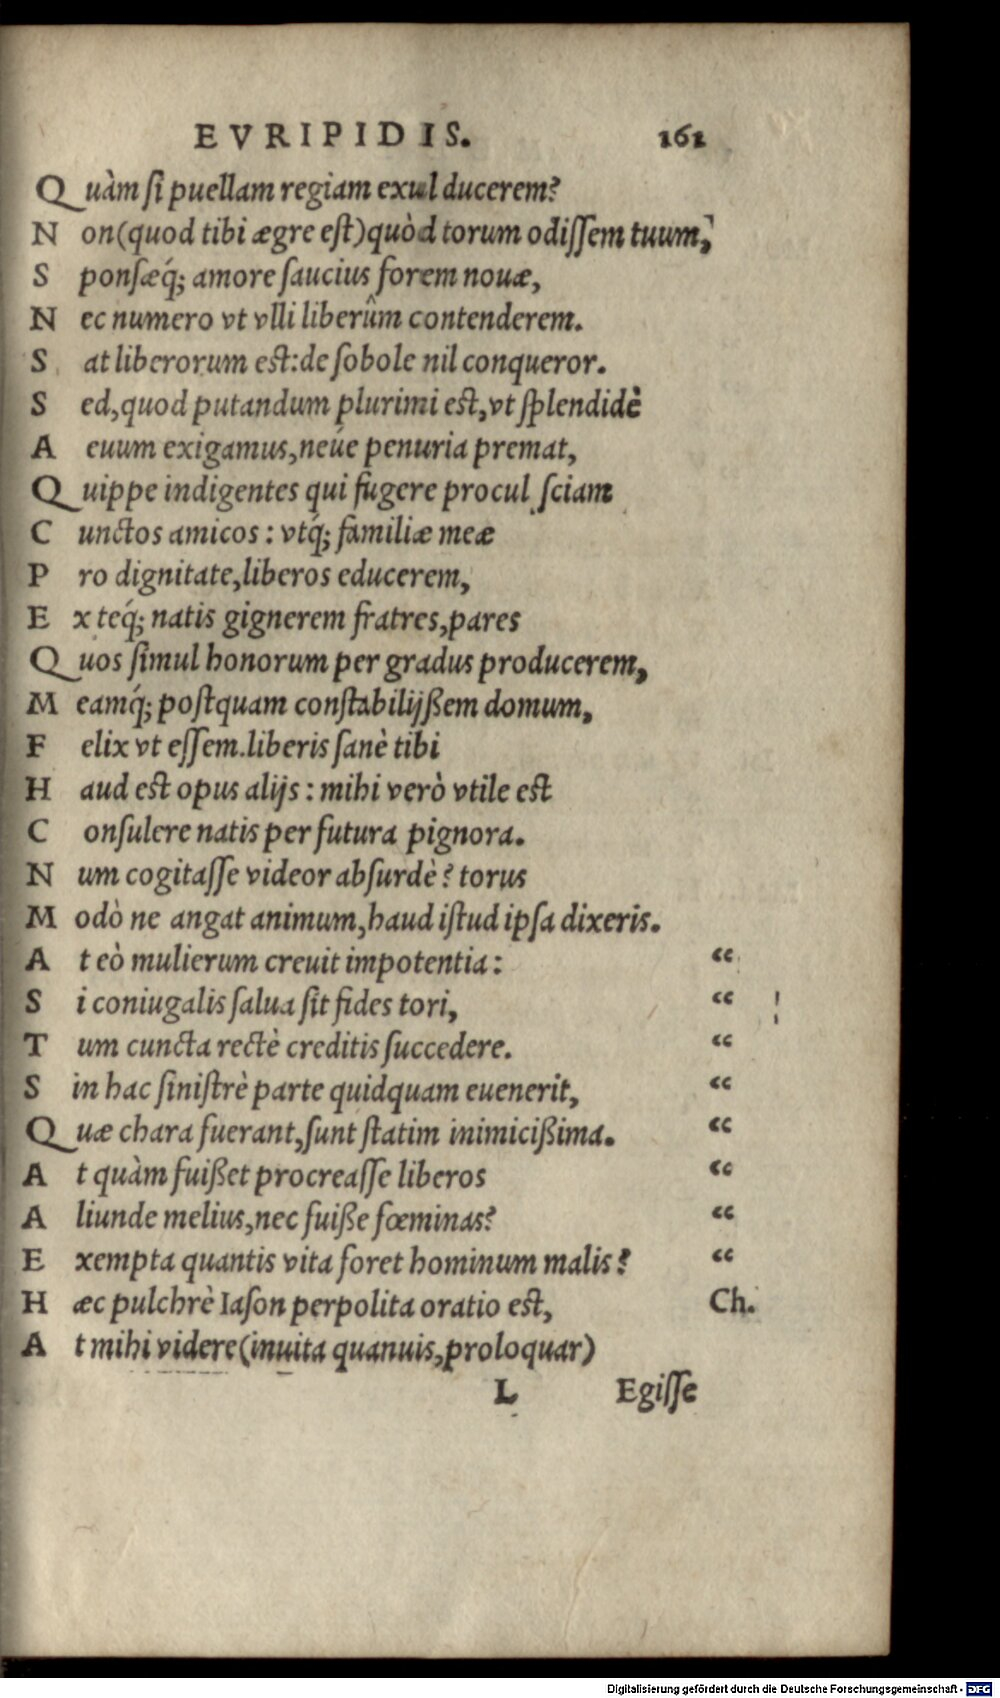 EVRIPIDIS. 161
Quàm ſi puellam regiam exul ducerem?
Non(quod tibi ægre eſt)quòd torum odiſſem tuum,
Sponſæq́; amore ſaucius forem nouæ,
Nec numero vt vlli liberûm contenderem.
Sat liberorum eſt:de ſobole nil conqueror.
Sed,quod putandum plurimi eſt,vt ſplendidè
Aeuum exigamus,neúe penuria premat,
Quippe indigentes qui fugere procul ſciam
Cunctos amicos : vtq́; familiæ meæ
Pro dignitate,liberos educerem,
Ex teq́; natis gignerem fratres,pares
Quos ſimul honorum per gradus producerem,
Meamq́; poſtquam conſtabilijßem domum,
Felix vt eſſem.liberis ſanè tibi
Haud eſt opus alijs : mihi verò vtile eſt
Conſulere natis per futura pignora.
Num cogitaſſe videor abſurdè? torus
Modò ne angat animum,haud iſtud ipſa dixeris.
At eò mulierum creuit impotentia: “
Si coniugalis ſalua ſit fides tori, “
Tum cuncta rectè creditis ſuccedere. “
Sin hac ſiniſtrè parte quidquam euenerit, “
Quæ chara fuerant,ſunt ſtatim inimicißima. “
At quàm fuißet procreaſſe liberos “
Aliunde melius,nec fuiße fœminas? “
Exempta quantis vita foret hominum malis? “
Hæc pulchrè Iaſon perpolita oratio eſt, Ch.
At mihi videre(inuita quanuis,proloquar)
L Egiſſe
Digitalisierung gefördert durch die Deutsche Forschungsgemeinschaft - DFG